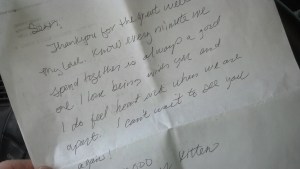 Thankyou for the great week
my love. Know every minute we
spend together is always a good
one I love being with you and
I do feel heart sick when we are
apart. I can't wait to see you
again!
XOXO
Kitten